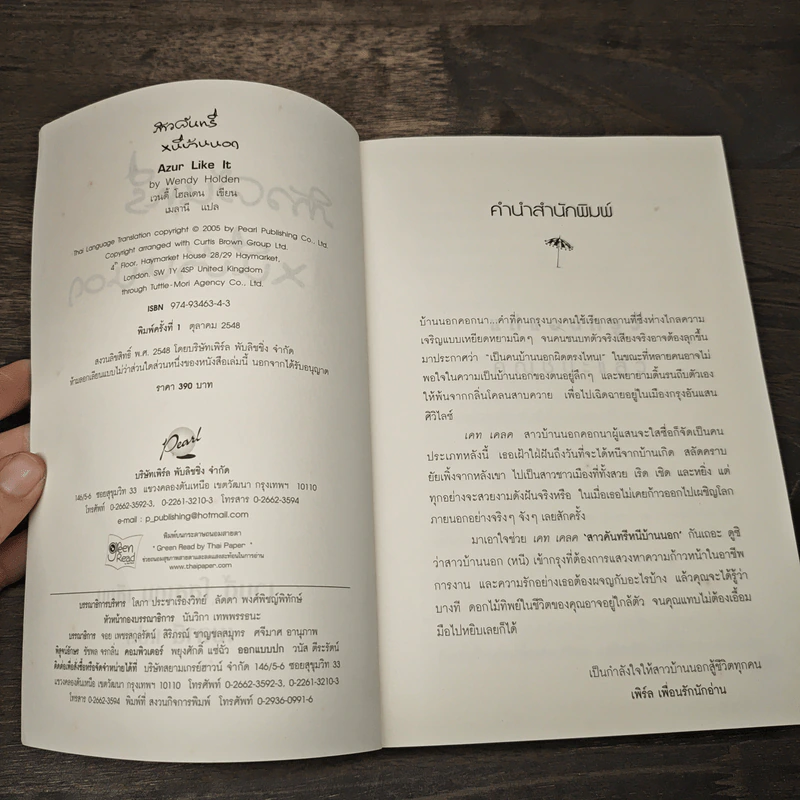 สาวคันทรี่
หนีบ้านนอก
Azur Like It
by Wendy Holden
เวนดี้ โฮลเดน เขียน
เมลานี แปล
Thai Language Translation copyright © 2005 by Pearl Publishing Co., Ltd.
Copyright arranged with Curtis Brown Group Ltd.
4th Floor, Haymarket House 28/29 Haymarket,
London, SW 1Y 4SP United Kingdom
through Tuttle-Mori Agency Co., Ltd.
ISBN 974-93463-4-3
พิมพ์ครั้งที่ 1 ตุลาคม 2548
สงวนลิขสิทธิ์ พ.ศ. 2548 โดยบริษัทเพิร์ล พับลิชชิ่ง จำกัด
ห้ามลอกเลียนแบบไม่ว่าส่วนใดส่วนหนึ่งของหนังสือเล่มนี้ นอกจากได้รับอนุญาต
ราคา 390 บาท
Pearl
บริษัทเพิร์ล พับลิชชิ่ง จำกัด
146/5-6 ซอยสุขุมวิท 33 แขวงคลองตันเหนือ เขตวัฒนา กรุงเทพฯ 10110
โทรศัพท์ 0-2662-3592-3, 0-2261-3210-3, โทรสาร 0-2662-3594
e-mail : p_publishing@hotmail.com
Green Read
พิมพ์บนกระดาษถนอมสายตา
"Green Read by Thai Paper"
ช่วยถนอมสุขภาพสายตาและลดแสงสะท้อนในการอ่าน
www.thaipaper.com
บรรณาธิการบริหาร โสภา ประชาเรืองวิทย์ ลัดดา พงศ์พิชญ์พิทักษ์
หัวหน้ากองบรรณาธิการ นันวิภา เทพพรรธนะ
บรรณาธิการ จอย เพชรสกุลรัตน์ สิริภรณ์ ชาญชลสมุทร ศจีมาศ อานุภาพ
พิสูจน์อักษร รัชพล จรกลิ่น คอมพิวเตอร์ พยุงศักดิ์ แซ่ฉั่ว ออกแบบปก วนัส ตีระรัตน์
ติดต่อเพื่อสั่งซื้อหรือจัดจำหน่ายได้ที่ บริษัทสยามเกรย์ฮาวน์ จำกัด 146/5-6 ซอยสุขุมวิท 33
แขวงคลองตันเหนือ เขตวัฒนา กรุงเทพฯ 10110 โทรศัพท์ 0-2662-3592-3, 0-2261-3210-3
โทรสาร 0-2662-3594 พิมพ์ที่ สงวนกิจการพิมพ์ โทรศัพท์ 0-2936-0991-6
คำนำสำนักพิมพ์
บ้านนอกคอกนา...คำที่คนกรุงบางคนใช้เรียกสถานที่ซึ่งห่างไกลความ
เจริญแบบเหยียดหยามนิดๆ จนคนชนบทตัวจริงเสียงจริงอาจต้องลุกขึ้น
มาประกาศว่า "เป็นคนบ้านนอกผิดตรงไหน!" ในขณะที่หลายคนอาจไม่
พอใจในความเป็นบ้านนอกของตนอยู่ลึกๆ และพยายามดิ้นรนถีบตัวเอง
ให้พ้นจากกลิ่นโคลนสาบควาย เพื่อไปเฉิดฉายอยู่ในเมืองกรุงอันแสน
ศิวิไลซ์
เคท เคลค สาวบ้านนอกคอกนาผู้แสนจะใสซื่อก็จัดเป็นคน
ประเภทหลังนี้ เธอเฝ้าใฝ่ฝันถึงวันที่จะได้หนีจากบ้านเกิด สลัดคราบ
ยัยเพิ้งจากหลังเขา ไปเป็นสาวชาวเมืองที่ทั้งสวย เริด เชิด และหยิ่ง แต่
ทุกอย่างจะสวยงามดังฝันจริงหรือ ในเมื่อเธอไม่เคยก้าวออกไปเผชิญโลก
ภายนอกอย่างจริงๆ จังๆ เลยสักครั้ง
มาเอาใจช่วย เคท เคลค 'สาวคันทรีหนีบ้านนอก' กันเถอะ ดูซิ
ว่าสาวบ้านนอก (หนี) เข้ากรุงที่ต้องการแสวงหาความก้าวหน้าในอาชีพ
การงาน และความรักอย่างเธอต้องผจญกับอะไรบ้าง แล้วคุณจะได้รู้ว่า
บางที ดอกไม้ทิพย์ในชีวิตของคุณอาจอยู่ใกล้ตัว จนคุณแทบไม่ต้องเอื้อม
มือไปหยิบเลยก็ได้
เป็นกำลังใจให้สาวบ้านนอกสู้ชีวิตทุกคน
เพิร์ล เพื่อนรักนักอ่าน